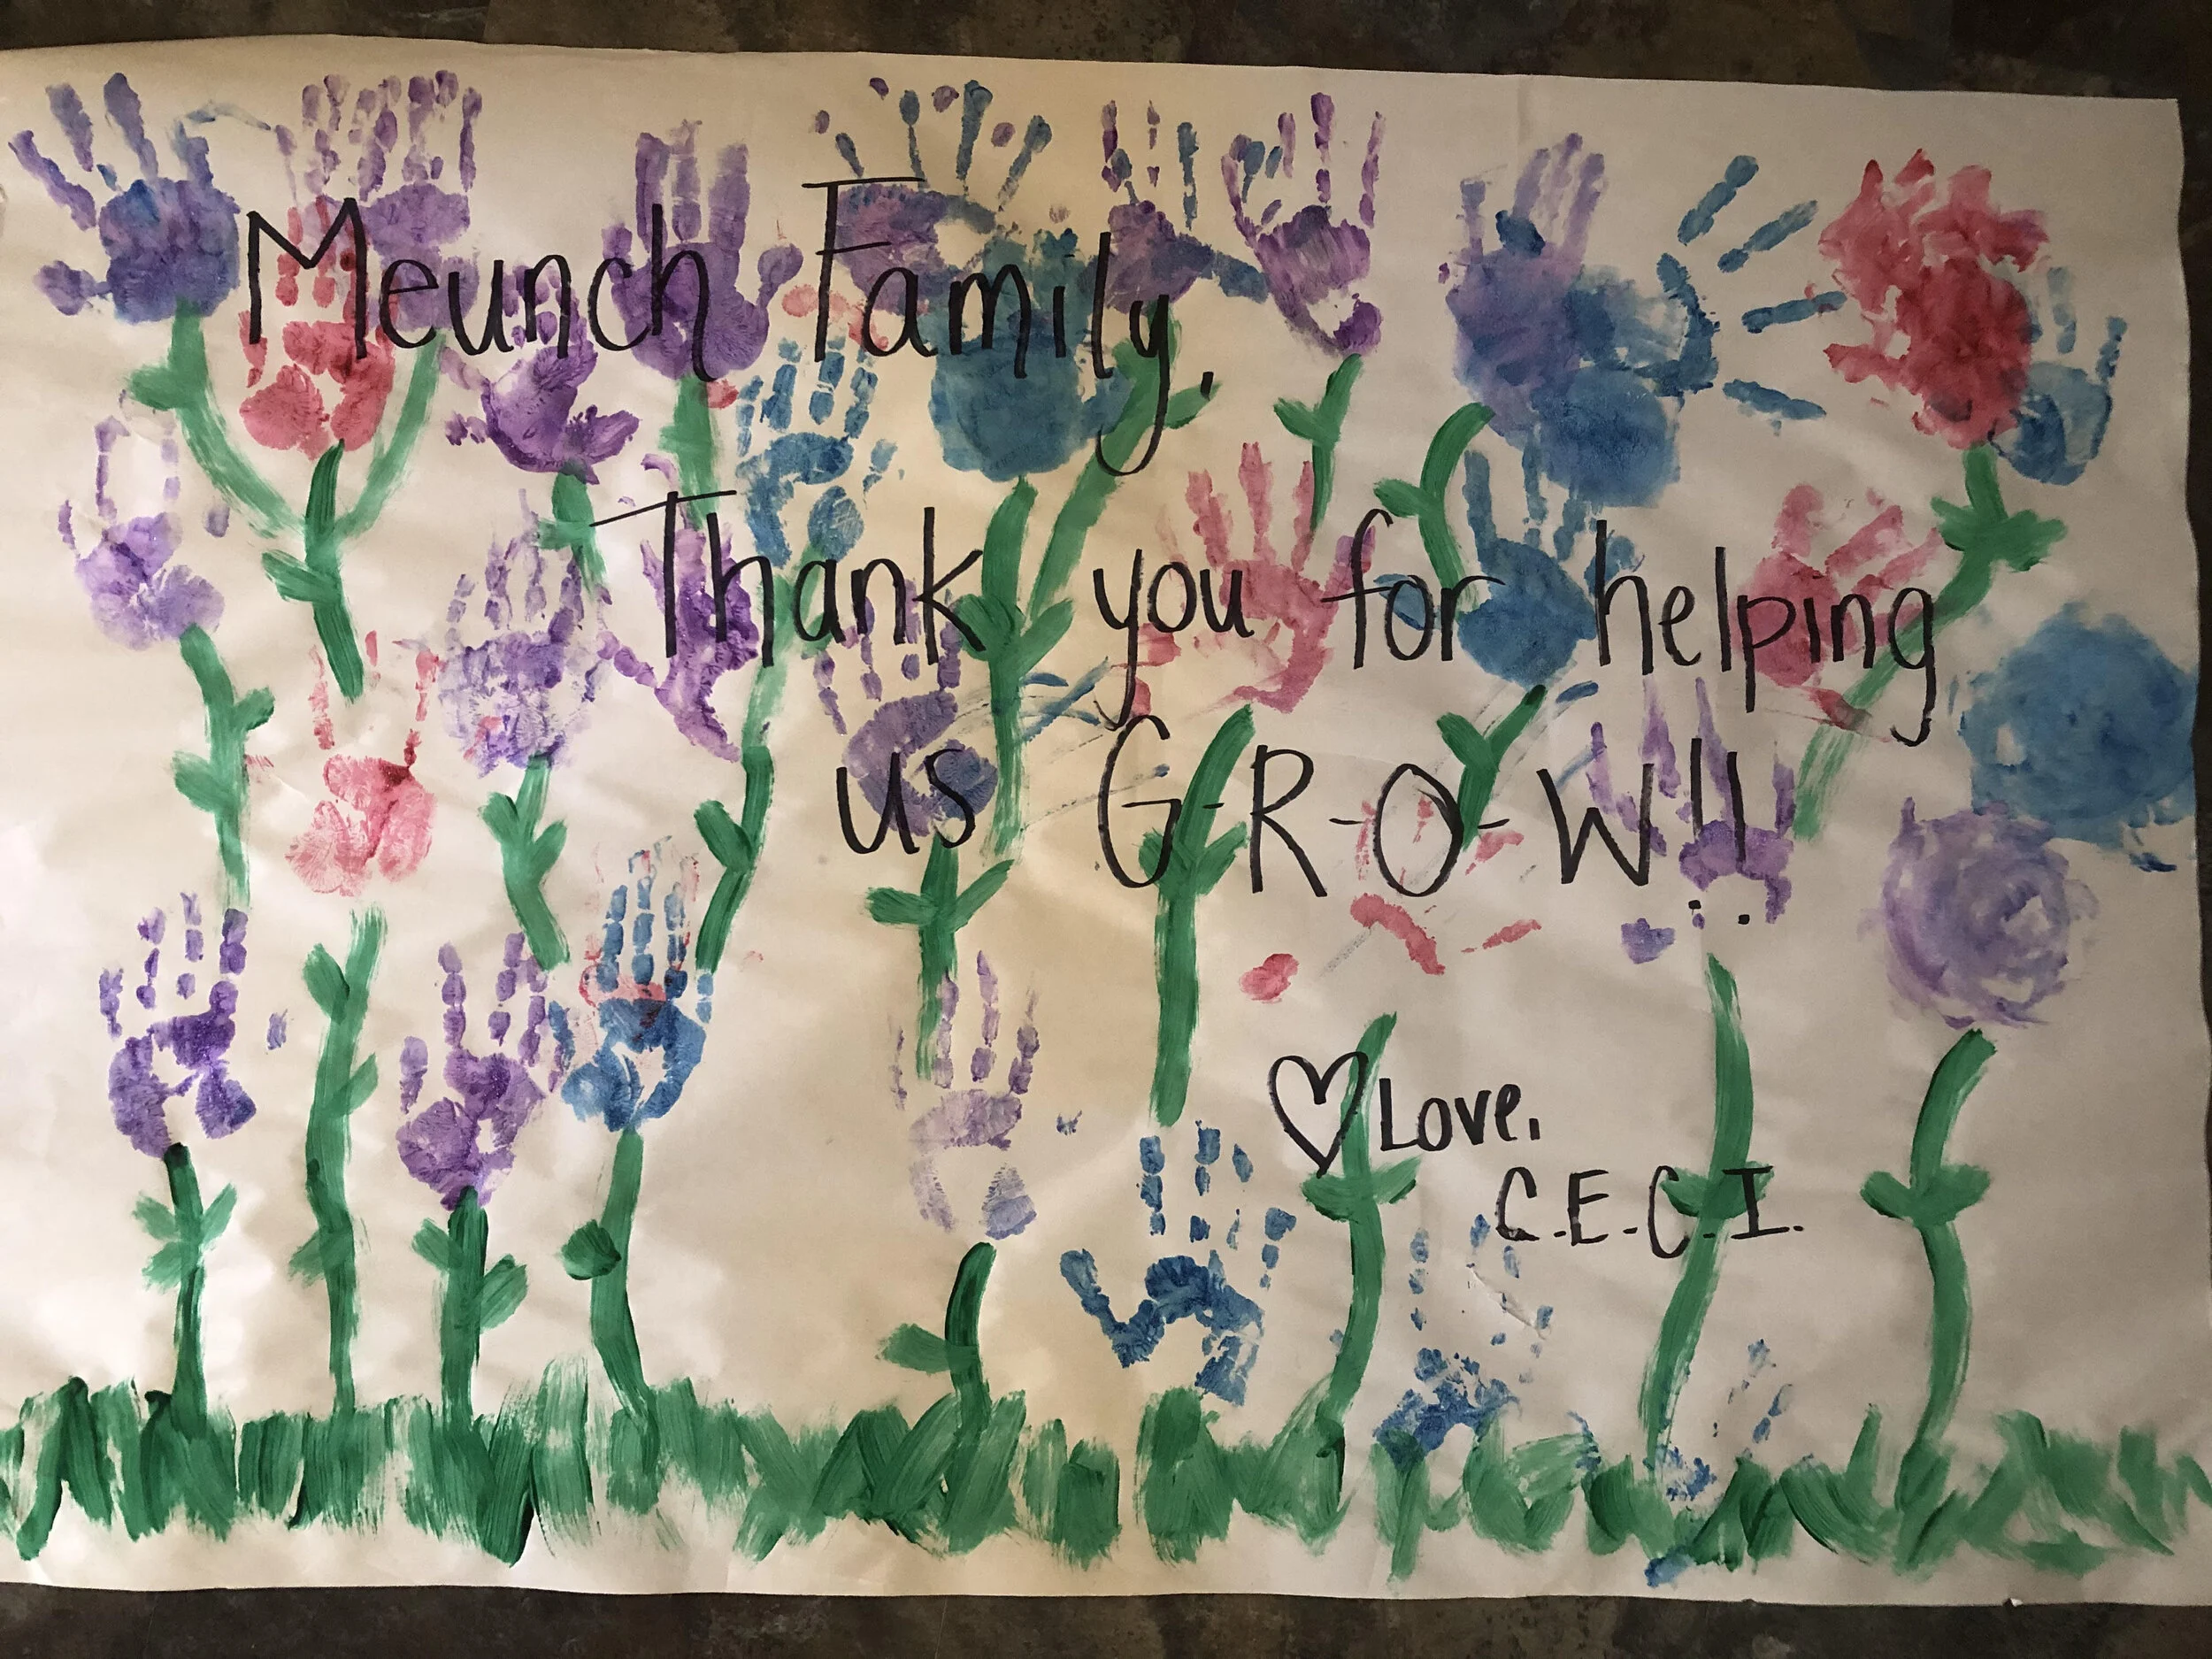 Meunch Family,
Thank you for helping
us G-R-O-W!!
♡ Love,
C.E.C.I.